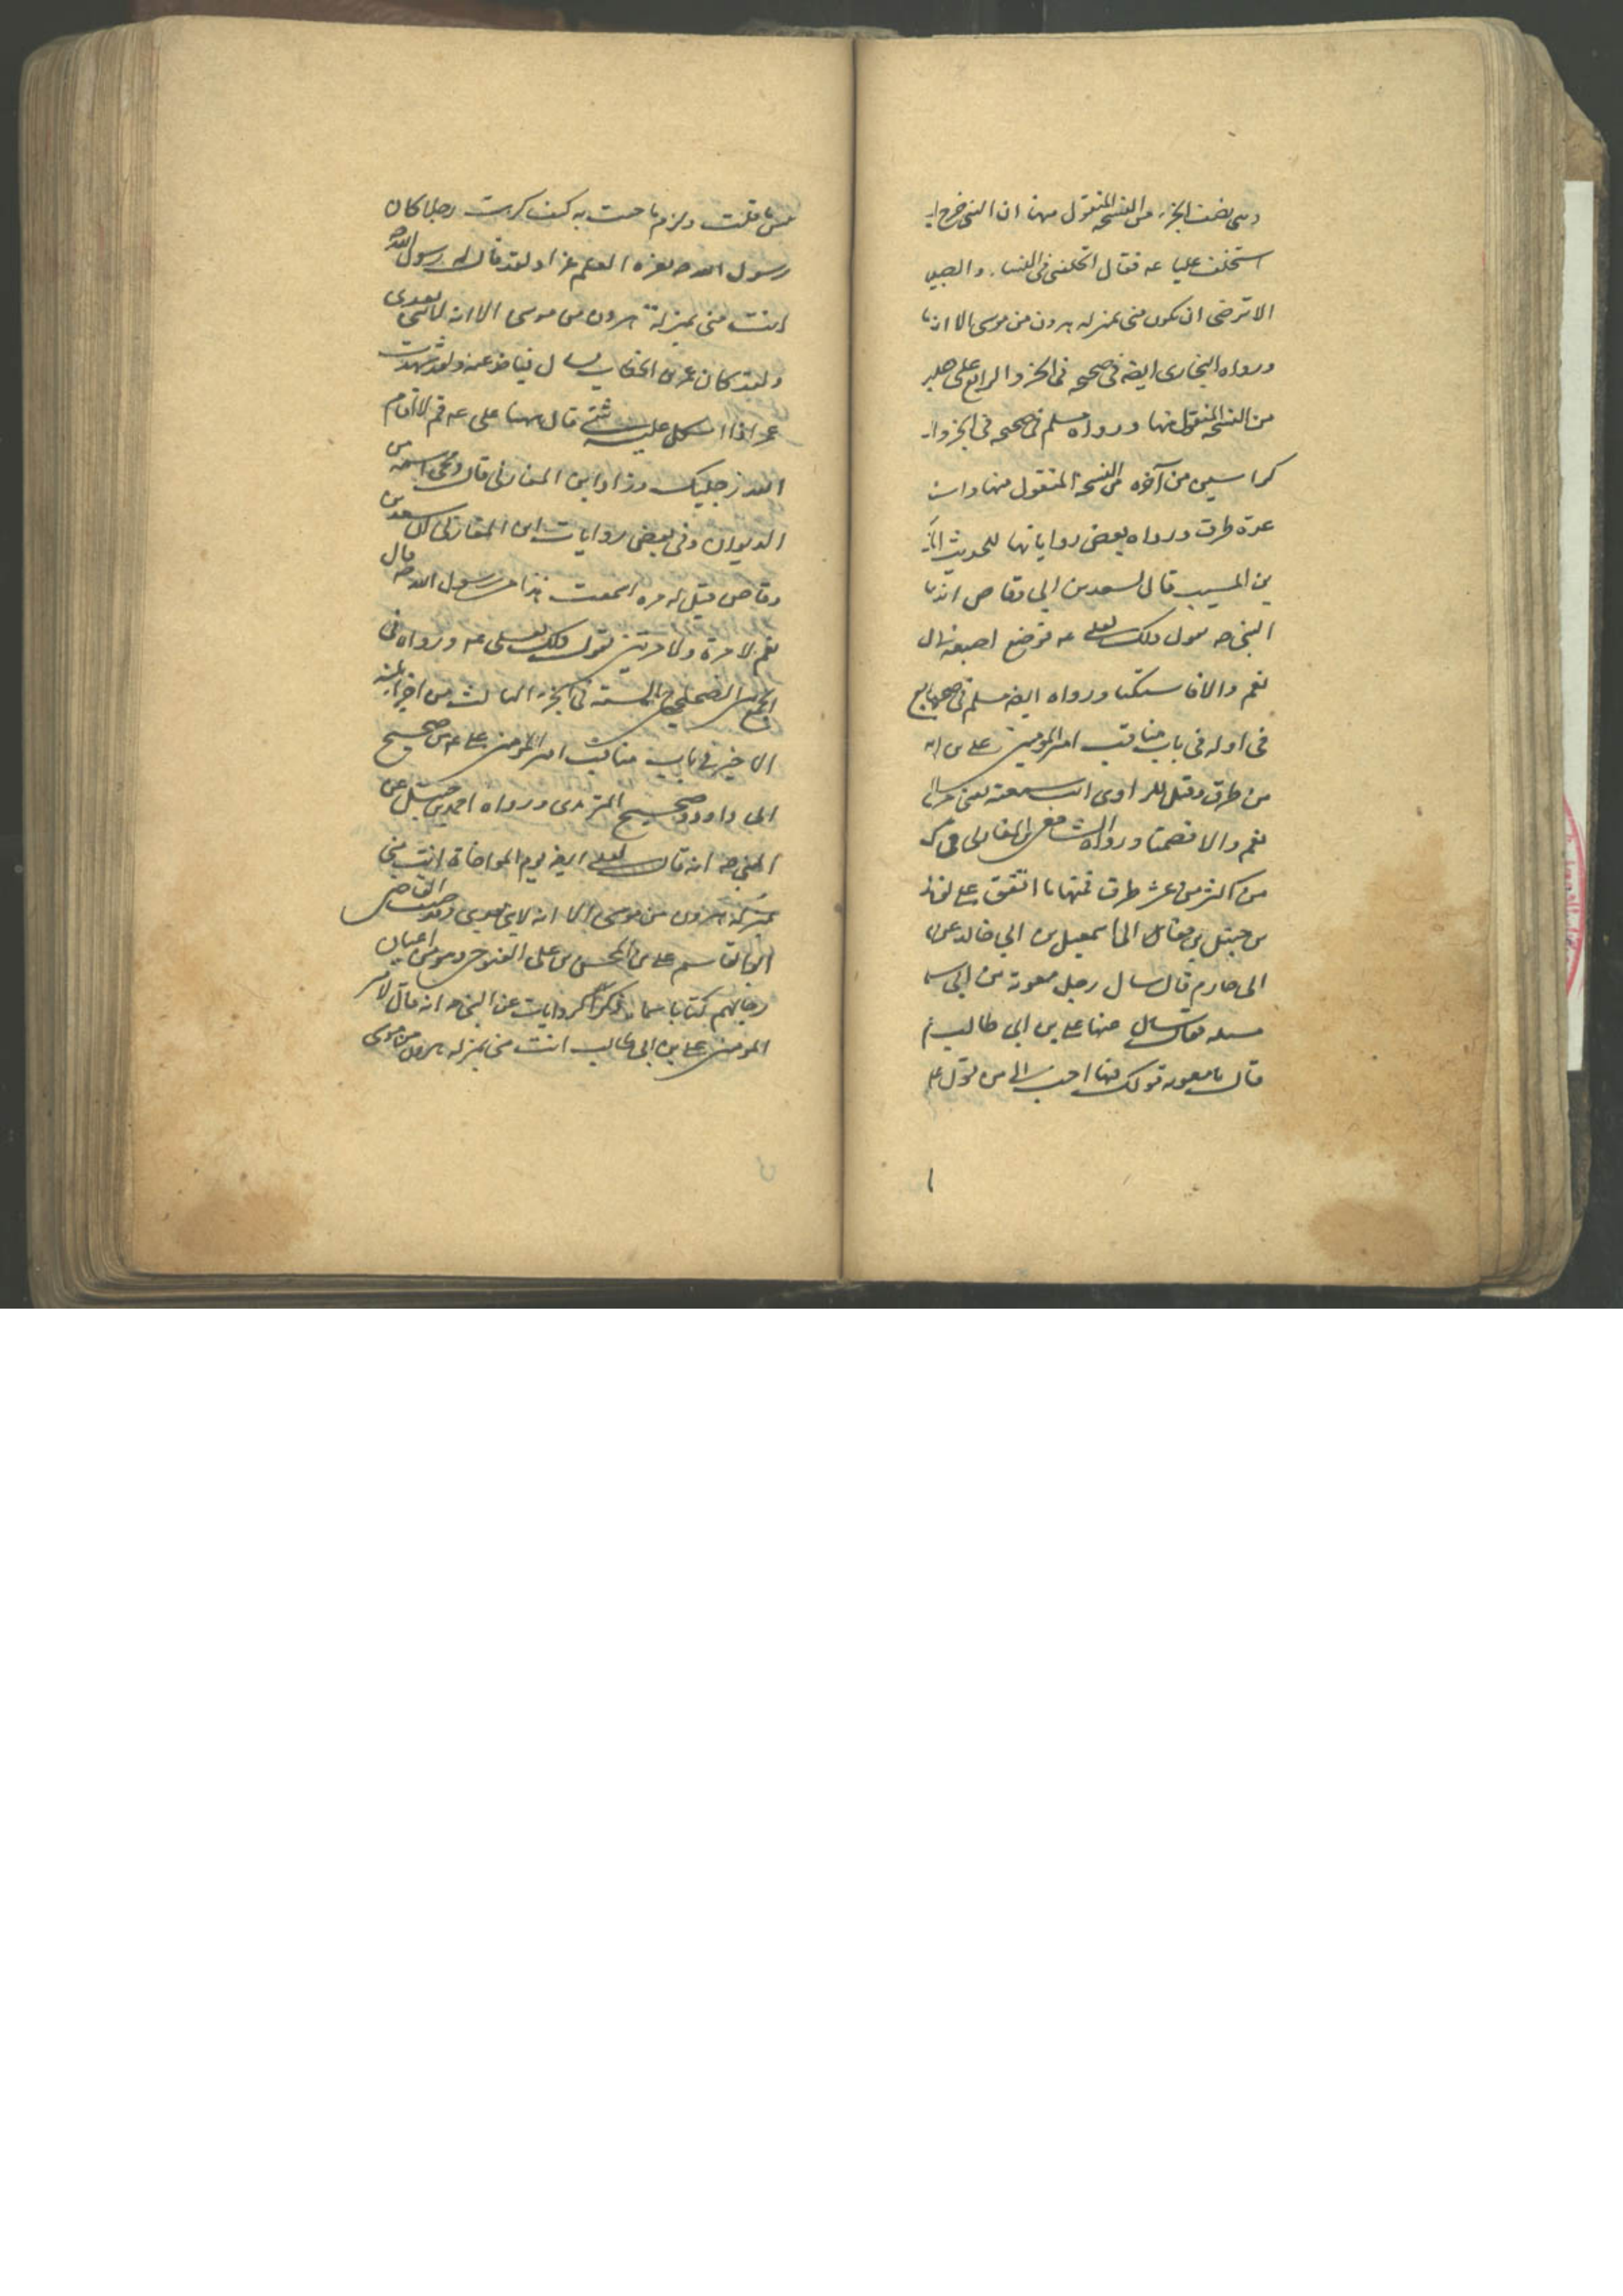 وهى نصف الجزء من النسخة المنقول منها ان النبى خرج ا
استخلف عليا عه فقال اتخلفنى فى النساء والصبيا
الا ترضى ان تكون منى بمنزله هرون من موسى الا انه
ورواه البخارى ايضه فى صحيحه فى الجزو الرابع على
من النسخه المنقول منها ورواه مسلم فى صحيحه فى الجزو ا
كراسين من آخره من النسخة المنقول منها واسن
عدة طرق ورواه بعض رواياتها للحديث
بن المسيب قال لسعد بن ابى وقاص انت
النبى صه يقول ذلك لعلى عه فوضع اصبعه
نعم والا فاستكتا ورواه ايضه مسلم فى
فى اوله فى باب مناقب امير المومنين على بن اب
من طرق وقيل للراوى انت سمعته يعنى
نعم والا فصمتا ورواه الشافعى ابن المغازلى فى ك
من اكثر من عشر طرق فمنها ما اتفق على لفظ
بن حنبل بن اسمعيل بن ابى خالد عن
ابى حازم قال سال رجل معوية من ابى س
مسله فقال سل عنها على بن ابى طالب ف
قال يا معويه قولك فيها احب الى من قول عل
ا
بئس ما قلت ولزم ما جئت به كيف كرهت رجلا كان
رسول الله صه يغزه العلم غزا ولقد قال له رسول الله صه
انت منى بمنزلة هرون من موسى الا انه لا نبى بعدى
ولقد كان عمر بن الخطاب يسال فياخذ عنه ولقد شهدت
عمر اذا اشكل عليه شئ قال ههنا على عه قم لا اقام
الله رجليك وزاد ابن المغازلى قال ومحى اسمه من
الديوان وفى بعض روايات ابن المغازلى سعد بن
وقاص قيل له مره اسمعت هذا من رسول الله صه قال
نعم لا مرة ولا مرتين يقول ذلك لعلى عه ورواه فى
الجمع بين الصحاح السته فى الجزء الثالث من اجزاء ثلثه
الاخير فى باب مناقب امير المومنين على عه من صحيح
ابى داود وصحيح الترمذى ورواه احمد بن حنبل عن
النبى صه انه قال لعلى ايضه يوم المواخاة انت منى
بمنزلة هرون من موسى الا انه لا نبى بعدى وقد صنف القاضى
ابو القاسم على بن المحسن بن على التنوخى وهو من اعيان
رجالهم كتابا سماه ذكر روايات عن النبى صه انه قال لامير
المومنين على بن ابى طالب انت منى بمنزله هرون من موسى